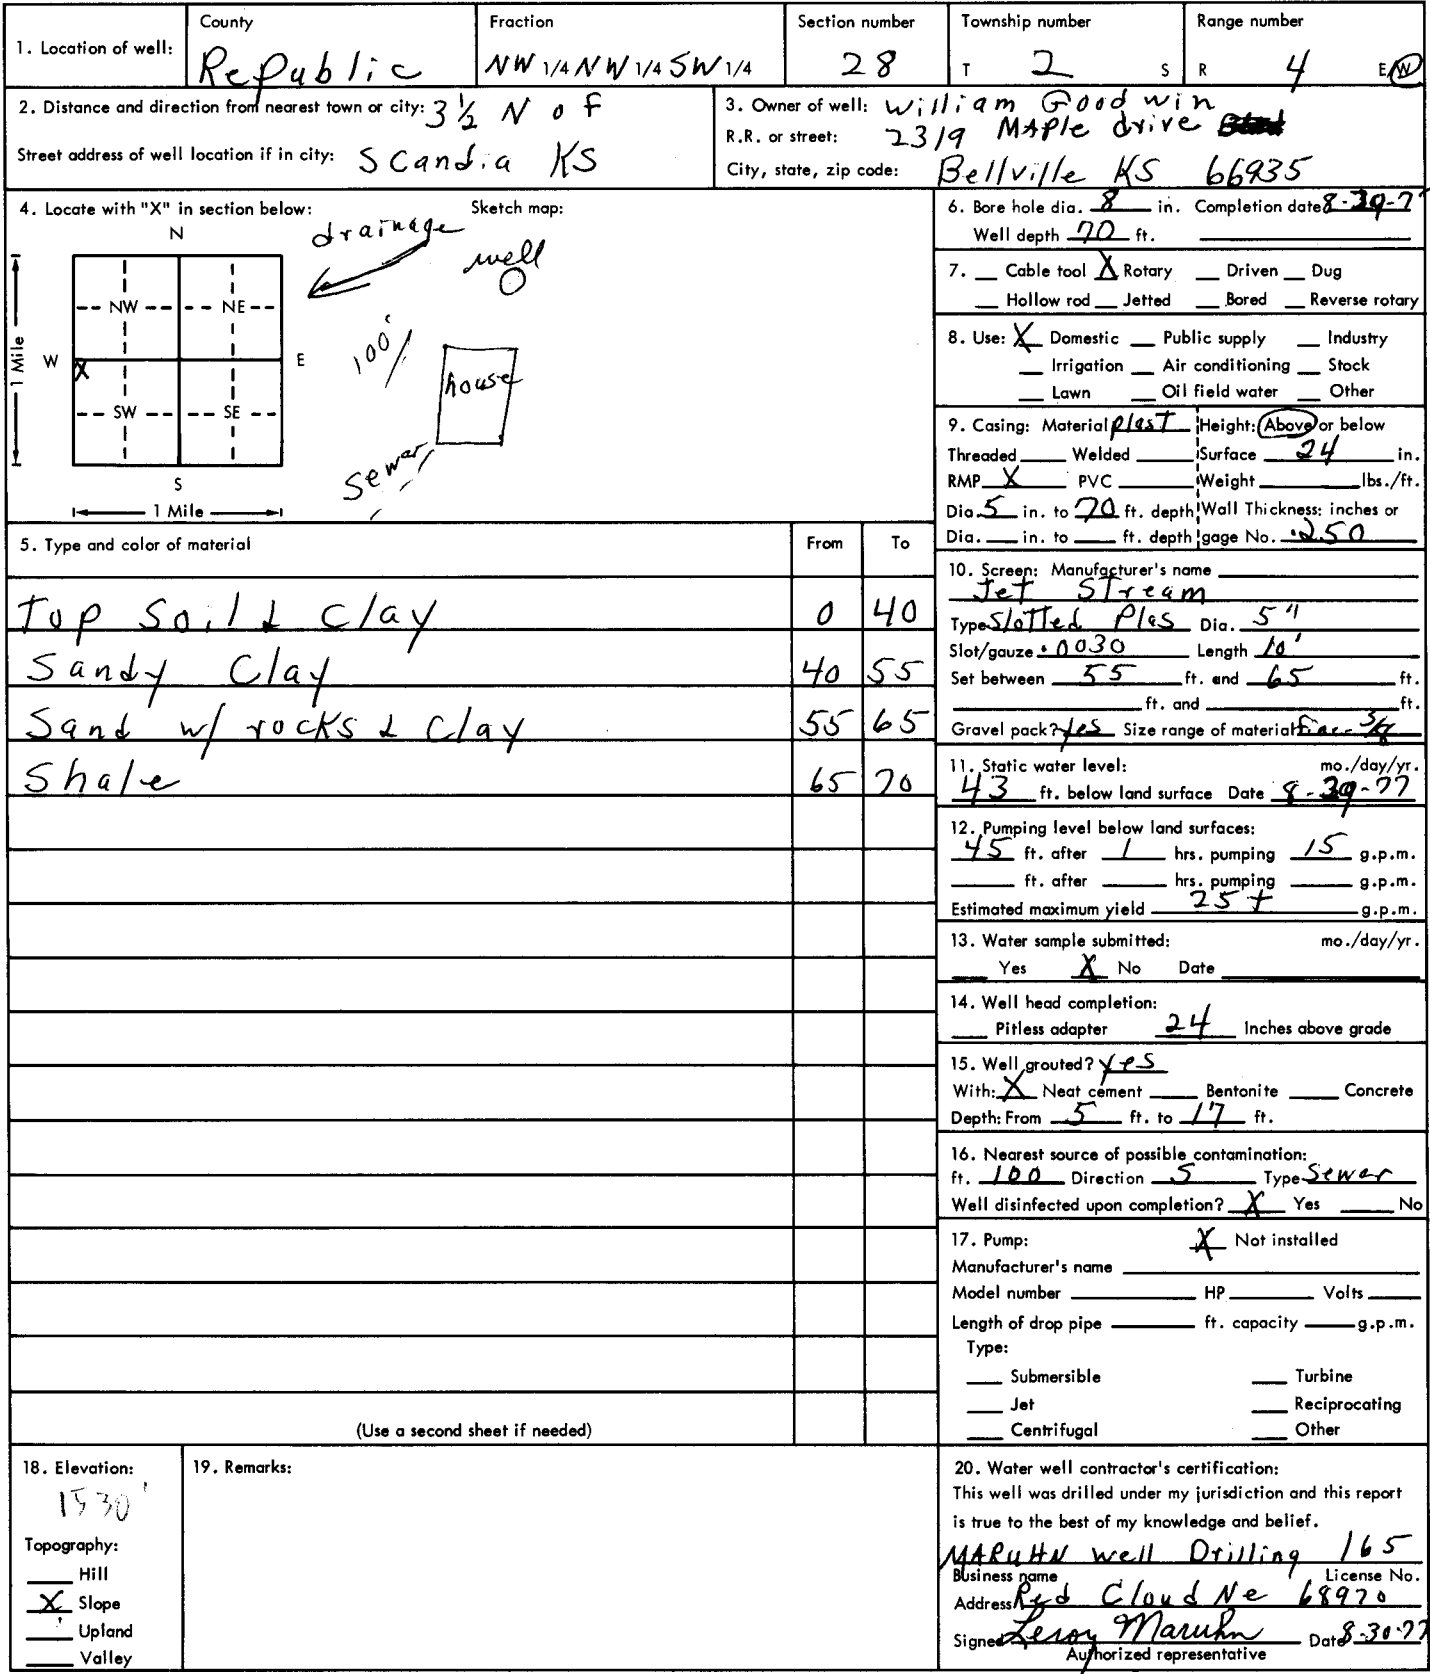 1. Location of well: County Republic Fraction NW 1/4 NW 1/4 SW 1/4 Section number 28 Township number T 2 S Range number R 4 E/W
2. Distance and direction from nearest town or city: 3 1/2 N of
Street address of well location if in city: Scandia KS
3. Owner of well: William Goodwin
R.R. or street: 2319 Maple drive
City, state, zip code: Bellville KS 66935
4. Locate with "X" in section below:
N
NW NE
W X E
SW SE
S
1 Mile
1 Mile
Sketch map:
drainage
well
100'
house
sewer
5. Type and color of material From To
Top Soil & Clay 0 40
Sandy Clay 40 55
Sand w/ rocks & Clay 55 65
Shale 65 70
(Use a second sheet if needed)
6. Bore hole dia. 8 in. Completion date 8-29-77
Well depth 70 ft.
7. Cable tool X Rotary Driven Dug
Hollow rod Jetted Bored Reverse rotary
8. Use: X Domestic Public supply Industry
Irrigation Air conditioning Stock
Lawn Oil field water Other
9. Casing: Material plast Height: Above or below
Threaded Welded Surface 24 in.
RMP X PVC Weight lbs./ft.
Dia. 5 in. to 70 ft. depth Wall Thickness: inches or
Dia. in. to ft. depth gage No. .250
10. Screen: Manufacturer's name
Jet Stream
Type Slotted Plas Dia. 5"
Slot/gauze .0030 Length 10'
Set between 55 ft. and 65 ft.
ft. and ft.
Gravel pack? Yes Size range of material fine - 3/8
11. Static water level: mo./day/yr.
43 ft. below land surface Date 8-29-77
12. Pumping level below land surfaces:
45 ft. after 1 hrs. pumping 15 g.p.m.
ft. after hrs. pumping g.p.m.
Estimated maximum yield 25+ g.p.m.
13. Water sample submitted: mo./day/yr.
Yes X No Date
14. Well head completion:
Pitless adapter 24 Inches above grade
15. Well grouted? yes
With: X Neat cement Bentonite Concrete
Depth: From 5 ft. to 17 ft.
16. Nearest source of possible contamination:
ft. 100 Direction S Type Sewer
Well disinfected upon completion? X Yes No
17. Pump: X Not installed
Manufacturer's name
Model number HP Volts
Length of drop pipe ft. capacity g.p.m.
Type:
Submersible Turbine
Jet Reciprocating
Centrifugal Other
18. Elevation:
1530'
Topography:
Hill
X Slope
Upland
Valley
19. Remarks:
20. Water well contractor's certification:
This well was drilled under my jurisdiction and this report
is true to the best of my knowledge and belief.
MARUHN Well Drilling 165
Business name License No.
Address Red Cloud Ne 68970
Signed Leroy Maruhn Date 8-30-77
Authorized representative